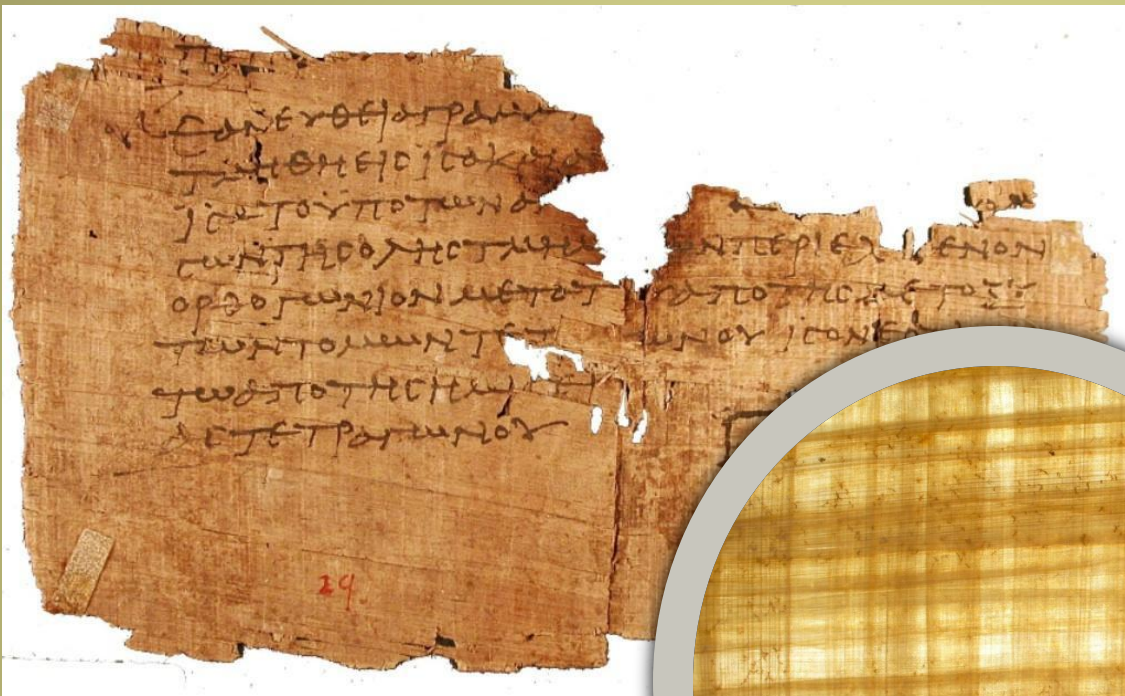 ΕΑΝ ΕΥΘΕΙΑ ΓΡΑΜΜ
ΤΜΗΘΗ ΕΙC ΙCΑ ΚΑΙ
ΙCΑ ΤΟ ΥΠΟ ΤΩΝ ΑΝ
CΩΝ ΤΗC ΟΛΗC ΤΜΗΜ ΩΝ ΠΕΡΙΕΧ ΜΕΝΟΝ
ΟΡΘΟΓΩΝΙΟΝ ΜΕΤΟ Τ Υ ΑΠΟ ΤΗC ΜΕΤΟΞΥ
ΤΩΝ ΤΟΜΩΝ ΤΕΤ ΩΝΟΥ ΙCΟΝ ΕC
ΤΩ ΑΠΟ ΤΗC ΗΜΙC
ΑC ΤΕΤΡΑΓΩΝΟΥ
29.